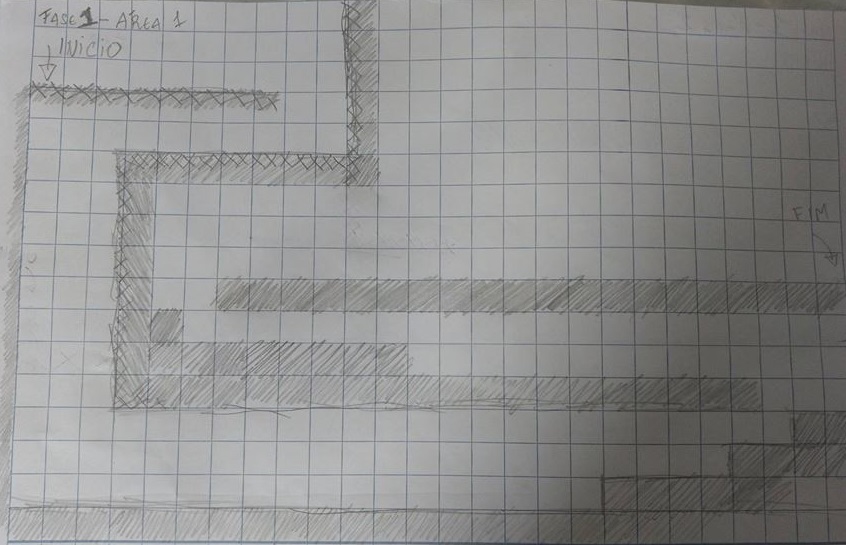 FASE 1 - AREA 1
INICIO
FIM